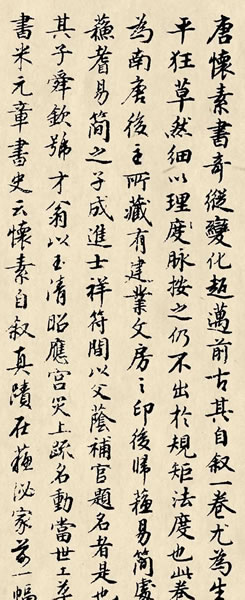 唐懷素書奇縱變化超邁前古其自叙一卷尤為生
平狂草然細以理度脉按之仍不出於規矩法度也此卷
為南唐後主所藏有建業文房之印後歸蘇易簡處
蘇耆易簡之子成進士祥符間以父蔭補官題名者是也
其子舜欽號才翁以玉清昭應宮災上疏名動當世工草
書米元章書史云懷素自叙真蹟在蘇泌家前一幅